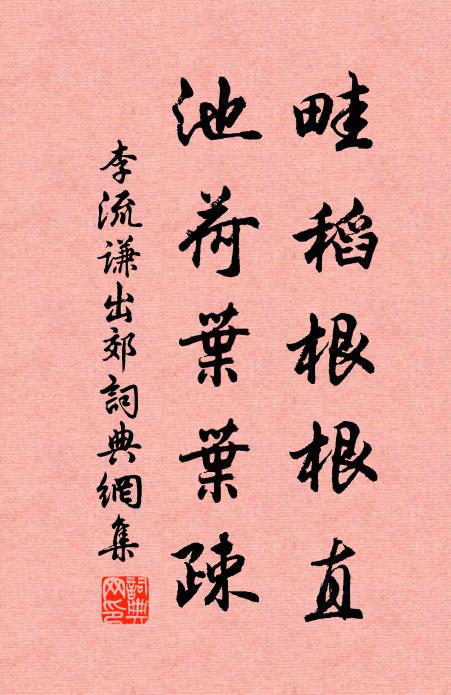 畦稻根根直
池荷葉葉疎
李流謙出郊詞典網集
詞典网印